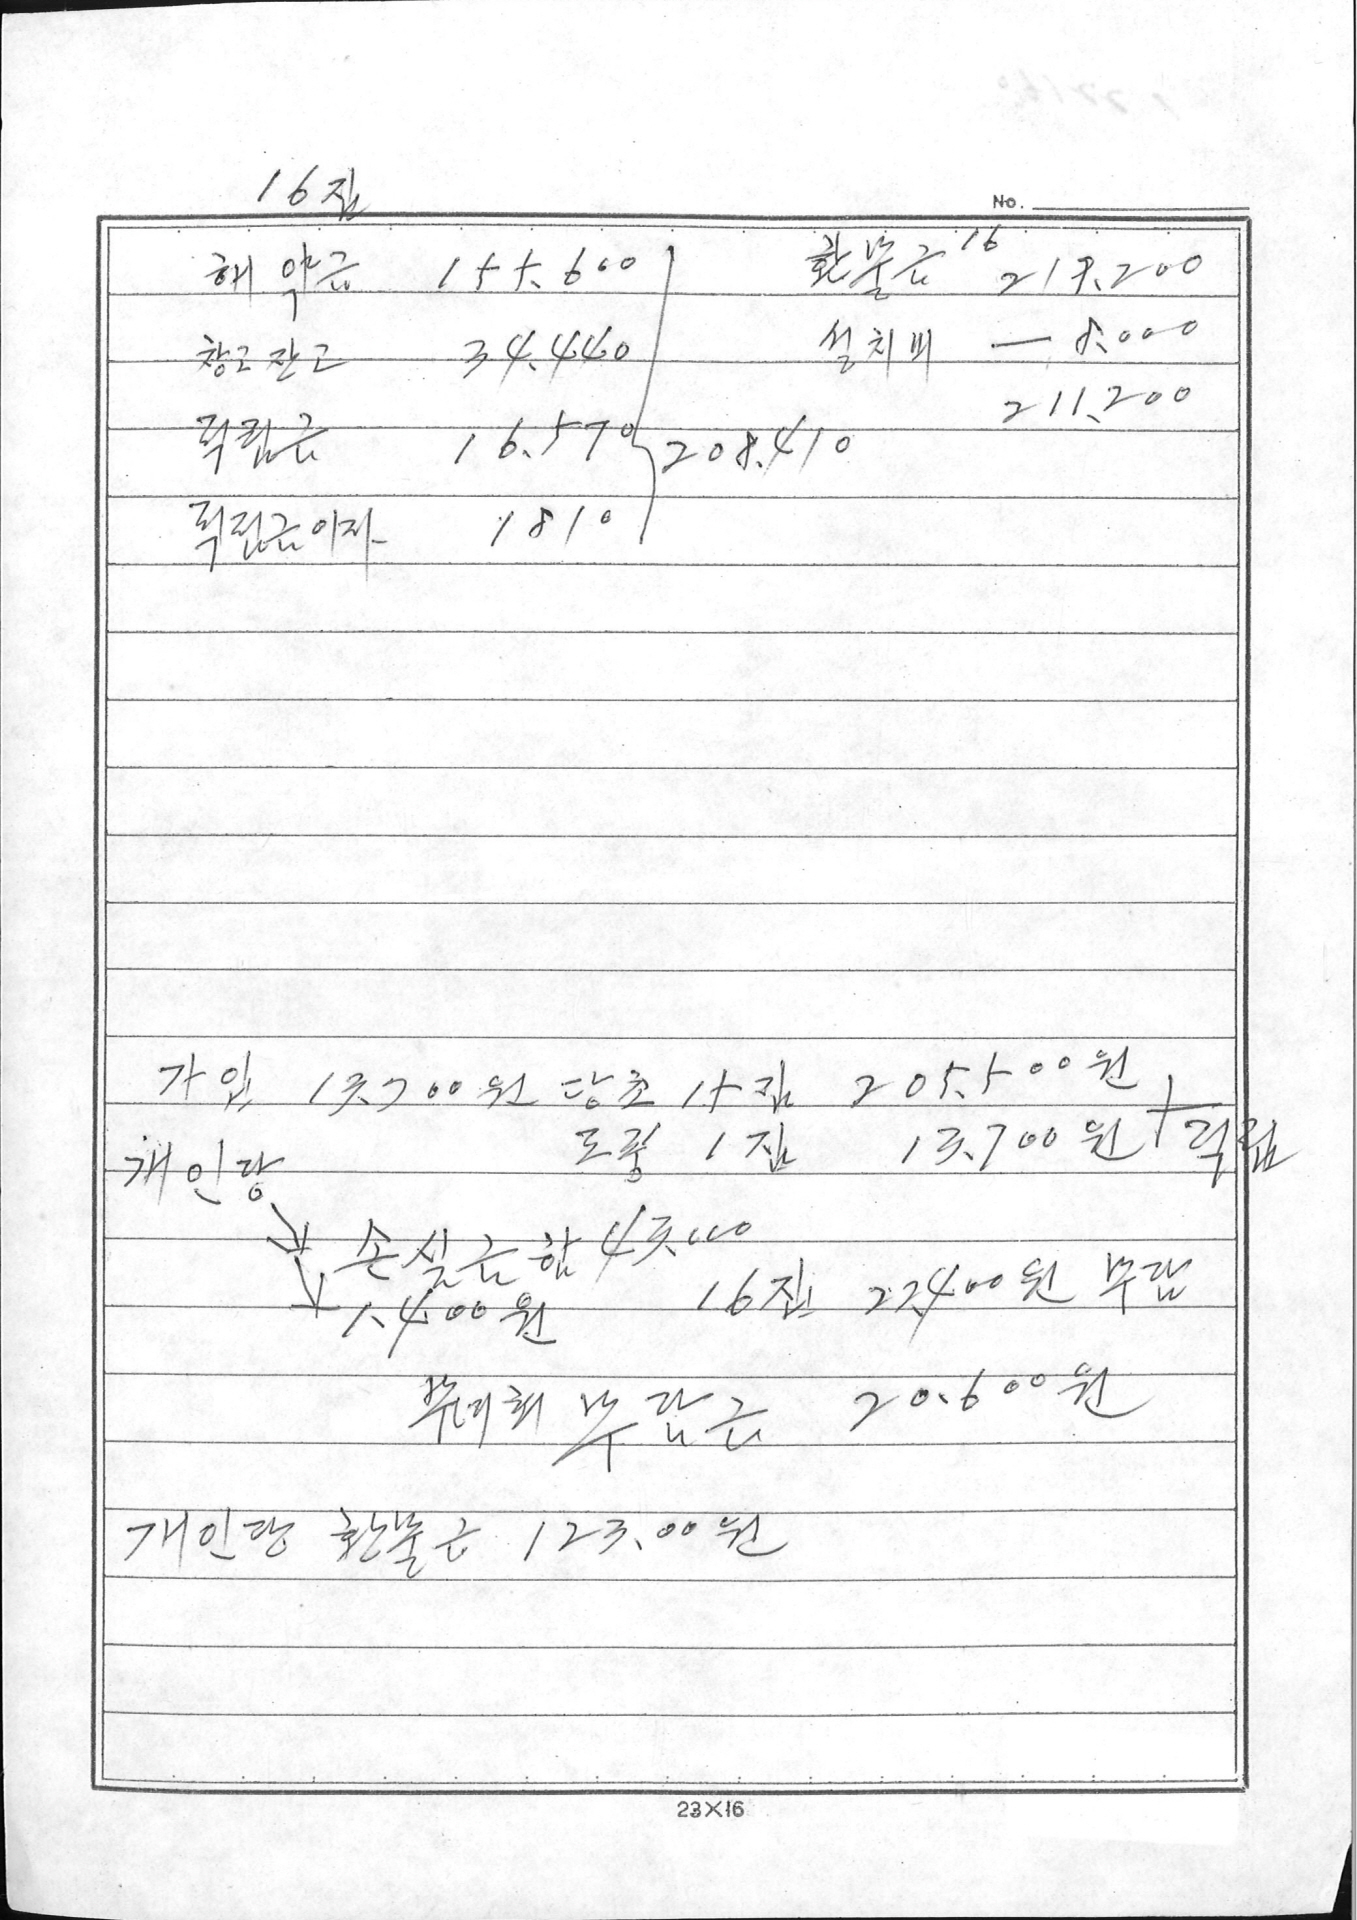 16집
No.
해약금 155.600 환불금 16 219.200
창고잔고 34.440 설치비 — 8.000
211.200
적립금 16.570 208.410
적립금이자 1810
가입 13.700원 당초 15집 205.500원
도중 1집 13.700원 + 적립
개인당
손실금합 43.000
1.400원 16집 22.400원 부담
부녀회 부담금 20.600원
개인당 환불금 123.00원
23×16